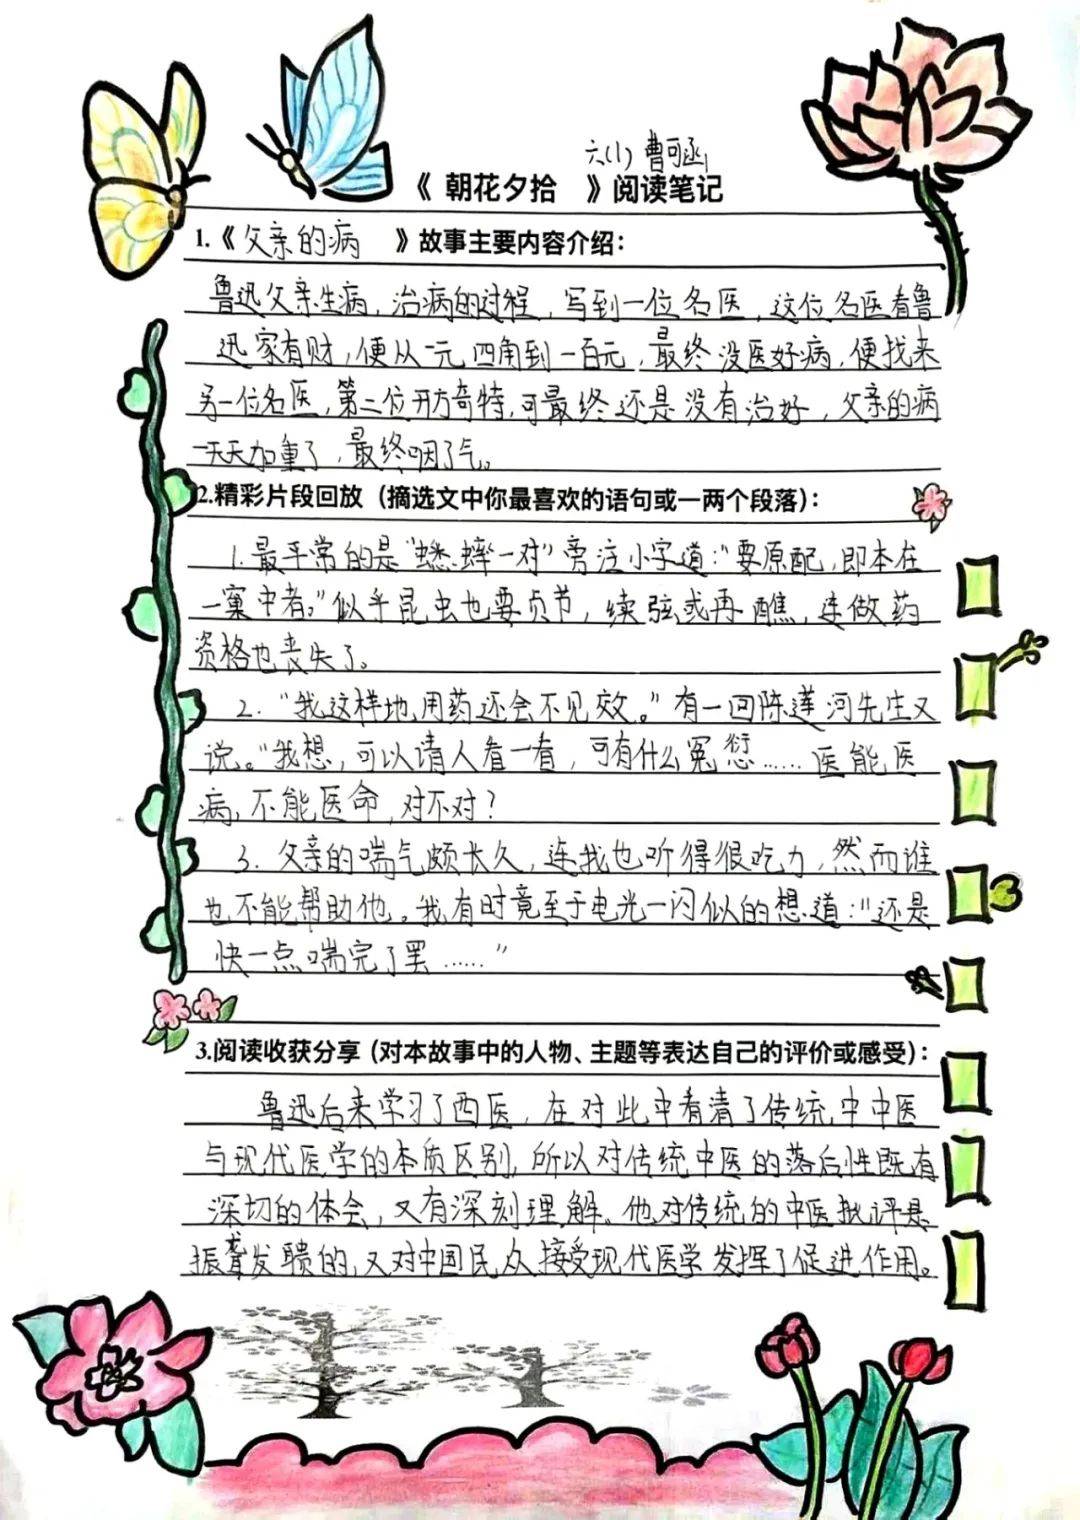 六(1) 曹可涵
《 朝花夕拾 》阅读笔记
1.《 父亲的病 》故事主要内容介绍：
鲁迅父亲生病，治病的过程，写到一位名医，这位名医看鲁
迅家有财，便从一元四角到一百元，最终没医好病，便找来
另一位名医，第二位开方奇特，可最终还是没有治好，父亲的病
一天天加重了，最终咽了气。
2.精彩片段回放（摘选文中你最喜欢的语句或一两个段落）：
1.最平常的是“蟋蟀一对”旁注小字道：“要原配，即本在
一窠中者。”似乎昆虫也要贞节，续弦或再醮，连做药
资格也丧失了。
2.“我这样地用药还会不见效。”有一回陈莲河先生又
说。“我想，可以请人看一看，可有什么冤愆……医能医
病，不能医命，对不对？
3. 父亲的喘气颇长久，连我也听得很吃力，然而谁
也不能帮助他。我有时竟至于电光一闪似的想道：“还是
快一点喘完了罢……”
3.阅读收获分享（对本故事中的人物、主题等表达自己的评价或感受）：
鲁迅后来学习了西医，在对此中看清了传统中中医
与现代医学的本质区别，所以对传统中医的落后性既有
深切的体会，又有深刻理解。他对传统的中医批评是
振聋发聩的，又对中国民众接受现代医学发挥了促进作用。